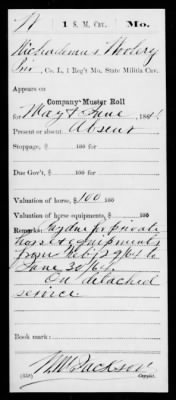 N | 1 S. M. Cav. | Mo.
Nichodemus
Pvt, Co. L, 1 Reg't Mo. State Militia Cav.
Appears on
Company Muster Roll
for May & June, 1864.
Present or absent Absent
Stoppage, $ 100 for
Due Gov't, $ 100 for
Valuation of horse, $ 100 100
Valuation of horse equipments, $ 100
Remarks: Use of private
horse & equipments
from Feb 29/64 to
June 30/64.
On detached
service.
Book mark:
Jackson
(358) Copyist.